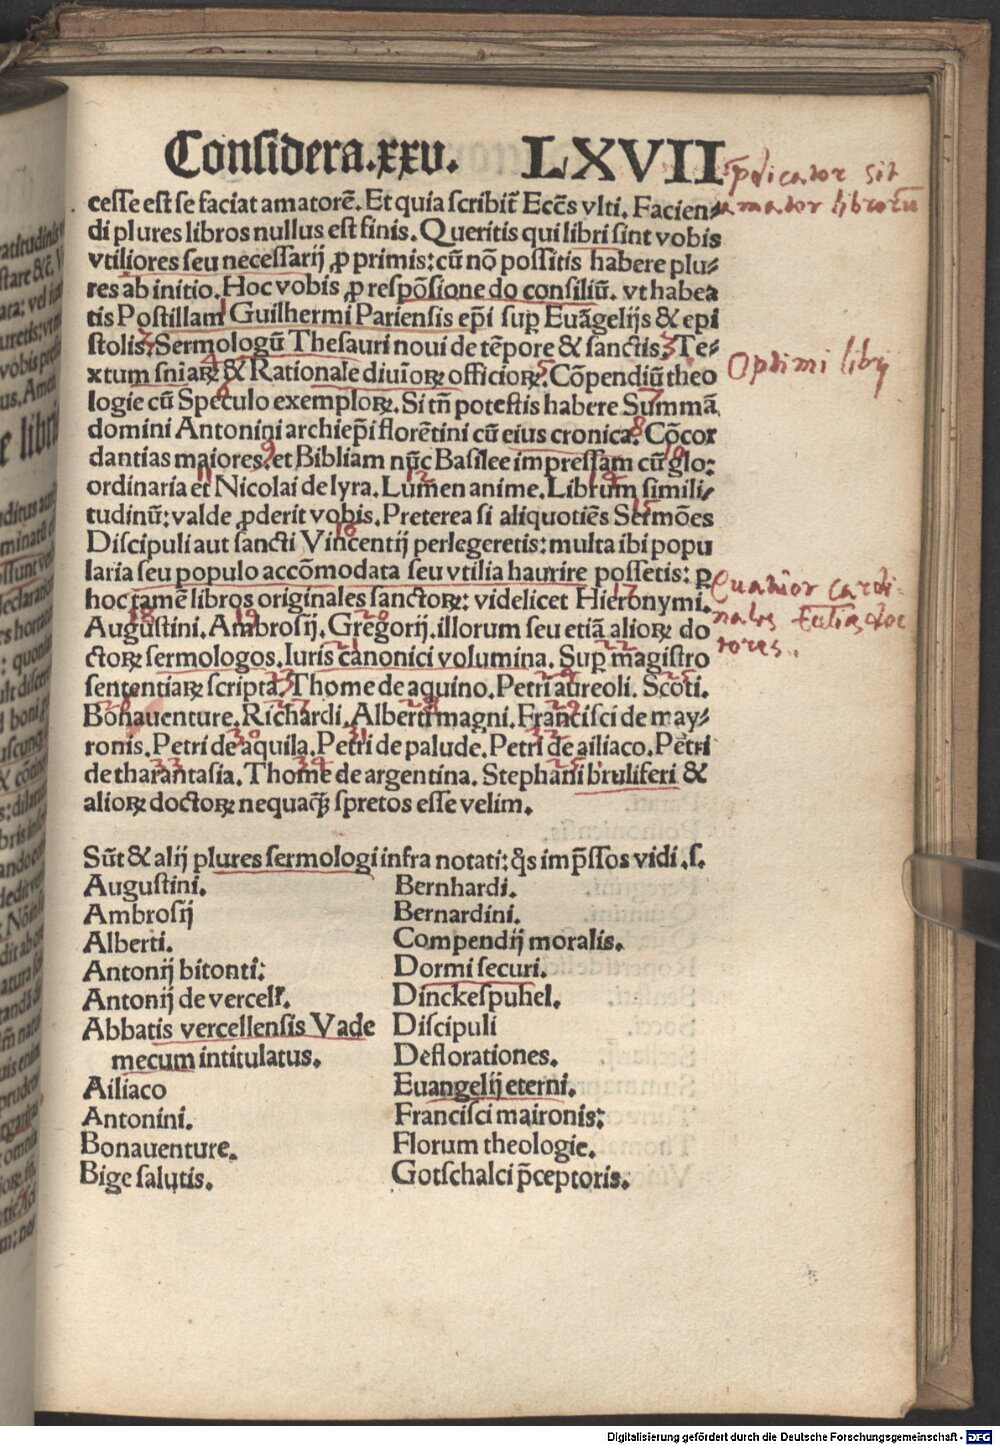 Considera.xxv. LXVII
p̄dicator sit
amator librorū
cesse est se faciat amatorē. Et quia scribit̄ Eccēs vlti. Facien⸗
di plures libros nullus est finis. Queritis qui libri sint vobis
vtiliores seu necessarij ꝓ primis: cū nō possitis habere plu⸗
res ab initio. Hoc vobis ꝓ respōsione do consiliū. vt habea
tis Postillam 1 Guilhermi Pariensis ep̄i suꝑ Euāgelijs & epi
stolis. 2 Sermologū Thesauri noui de tēpore & sanctis. 3 Te⸗
xtum sn̄iaꝝ 4 & Rationale diui᷑oꝝ officioꝝ. 5 Cōpendiū theo
Optimi libri
logie cū Speculo 6 exemploꝝ. Si tn̄ potestis habere Summā 7
domini Antonini archiep̄i florētini cū eius cronica. 8 Cōcor
dantias maiores. 9 et Bibliam nūc Basilee impressam cū glo: 10
ordinaria et 11 Nicolai de lyra. Lumen 12 anime. Librum simili⸗
tudinū: valde ꝓderit vobis. Preterea si aliquotiēs Sermōes 15
Discipuli aut sancti Vincentij 16 perlegeretis: multa ibi popu
laria seu populo accōmodata seu vtilia haurire possetis: ꝑ
hoc tamē libros originales sanctoꝝ: videlicet Hieronymi. 17
Quatuor cardi-
nales Ecclīas doc
tores..
Augustini. 18 Ambrosij. 19 Gregorij. 20 illorum seu etiā alioꝝ do
ctoꝝ sermologos. Iuris canonici 21 volumina. Suꝑ magistro 22
sententiaꝝ scripta. 23 Thome de aquino. Petri aureoli. 24 Scoti. 25
Bonauenture. 26 Richardi. 27 Alberti magni. 28 Francisci de may⸗ 29
ronis. Petri de aquila. 30 Petri de palude. 31 Petri de ailiaco. 32 Petri
de tharantasia. 33 Thome de argentina. 34 Stephani bruliferi & 35
alioꝝ doctoꝝ nequaꝗ̄ spretos esse velim.
Sūt & alij plures sermologi infra notati: q̄s imp̄ssos vidi .s.
Augustini.
Ambrosij
Alberti.
Antonij bitonti:
Antonij de vercell.
Abbatis vercellensis Vade
mecum intitulatus.
Ailiaco
Antonini.
Bonauenture.
Bige salutis.
Bernhardi.
Bernardini.
Compendij moralis.
Dormi securi.
Dinckespuhel.
Discipuli
Deflorationes.
Euangelij eterni.
Francisci maironis:
Florum theologie.
Gotschalci p̄ceptoris.
Digitalisierung gefördert durch die Deutsche Forschungsgemeinschaft - DFG